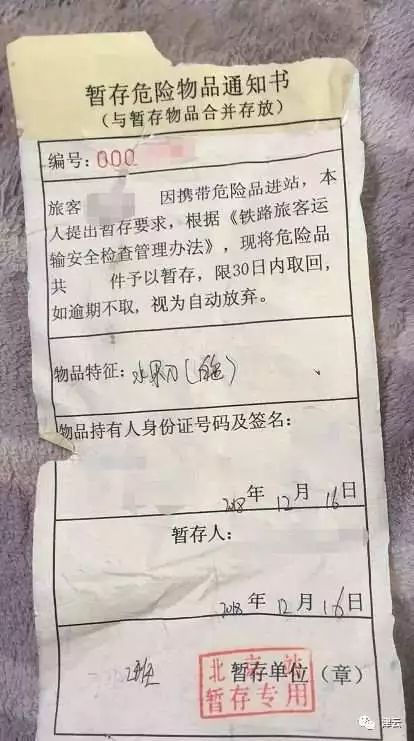 暂存危险物品通知书
（与暂存物品合并存放）
编号：000
旅客 因携带危险品进站，本
人提出暂存要求，根据《铁路旅客运
输安全检查管理办法》，现将危险品
共 件予以暂存，限30日内取回，
如逾期不取，视为自动放弃。
物品特征：水果刀（白色）
物品持有人身份证号码及签名：
2018年12月16日
暂存人：
2018年12月16日
暂存单位（章）
北京站
暂存专用
津云